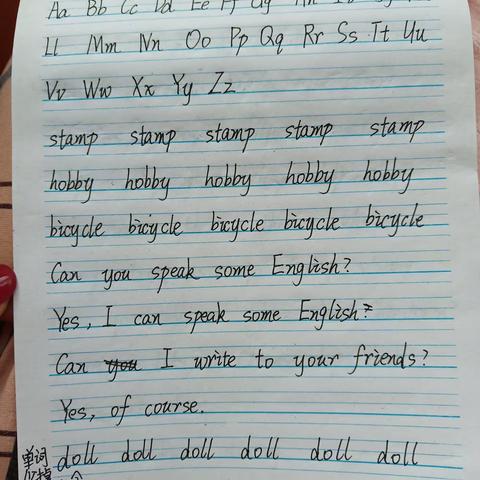 Aa Bb Cc Dd Ee Ff Gg
Ll Mm Nn Oo Pp Qq Rr Ss Tt Uu
Vv Ww Xx Yy Zz
stamp stamp stamp stamp stamp
hobby hobby hobby hobby hobby
bicycle bicycle bicycle bicycle bicycle
Can you speak some English?
Yes, I can speak some English?
Can you I write to your friends?
Yes, of course.
单词 doll doll doll doll doll doll